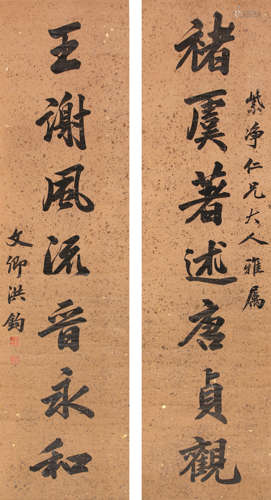 紫净仁兄大人雅属
褚虞著述唐貞觀
王謝風流晋永和
文卿洪鈞